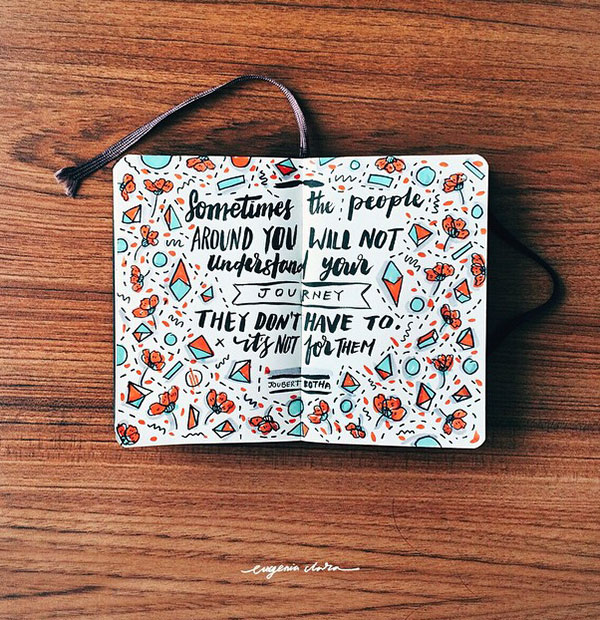 Sometimes the people
AROUND YOU WILL NOT
understand your
JOURNEY
THEY DON'T HAVE TO.
it's NOT for THEM
JOUBERT BOTHA
eugenia clara